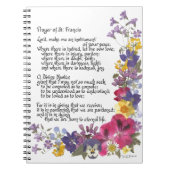 Prayer of St. Francis
Lord, make me an instrument
of your peace,
Where there is hatred, let me sow love;
where there is injury, pardon;
where there is doubt, faith;
where there is despair, hope;
where there is darkness, light;
and where there is sadness, joy.
O Divine Master
grant that I may not so much seek
to be consoled as to console;
to be understood as to understand;
to be loved as to love;
For it is in giving that we receive;
it is in pardoning that we are pardoned;
and it is in dying
that we are born to eternal life.